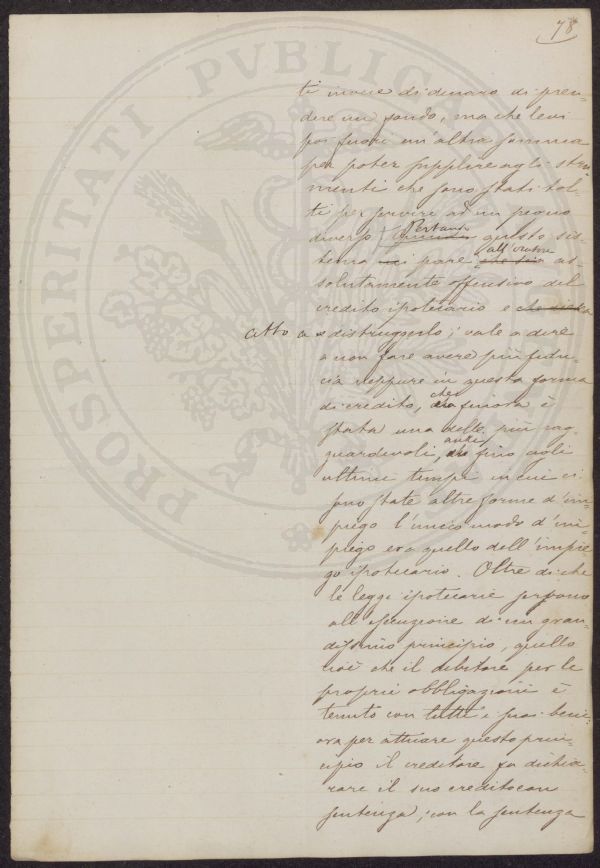 78
PROSPERITATI PVBLICAE
ti invece di denaro di pren-
dere un fondo, ma che levi
poi fuori un'altra somma
per poter supplire agli stru-
menti che sono stati tol-
ti per servire ad un pegno
diverso. Pertanto questo sis-
tema ci pare all'oratore as-
solutamente offensivo del
credito ipotecario e
atto a distruggerlo; vale a dire
a non fare avere più fidu-
cia neppure in questa forma
di credito, che finora è
stata una delle più rag-
guardevoli, anzi fino agli
ultimi tempi in cui ci
sono state altre forme d'im-
piego l'unico modo d'im-
piego era quello dell'impie-
go ipotecario. Oltre di che
le leggi ipotecarie servono
all'esecuzione di un gran-
dissimo principio, quello
cioè che il debitore per le
proprie obbligazioni è
tenuto con tutti i suoi beni;
ora per attuare questo prin-
cipio il creditore fa dichia-
rare il suo credito con
sentenza; con la sentenza